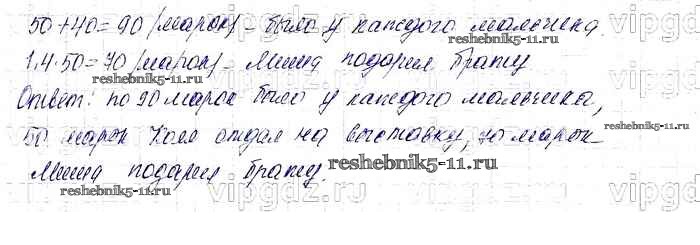 50+40=90 (марок) - было у каждого мальчика.
1,4·50=70 (марок) - Миша подарил брату
Ответ: по 90 марок было у каждого мальчика,
50 марок Коля отдал на выставку, 70 марок -
Миша подарил брату.
reshebnik5-11.ru
reshebnik5-11.ru
reshebnik5-11.ru
reshebnik5-11.ru
reshebnik5-11.ru
vipgdz.ru
vipgdz.ru
vipgdz.ru